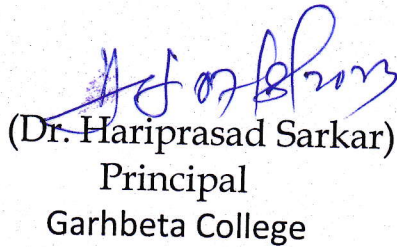 (Dr. Hariprasad Sarkar)
Principal
Garhbeta College